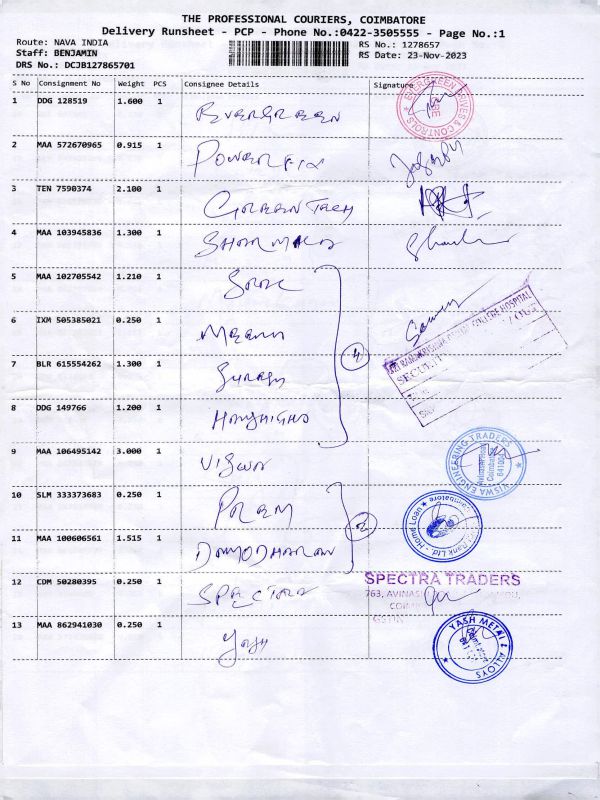 THE PROFESSIONAL COURIERS, COIMBATORE
Delivery Runsheet - PCP - Phone No.:0422-3505555 - Page No.:1
Route: NAVA INDIA
RS No.: 1278657
Staff: BENJAMIN
RS Date: 23-Nov-2023
DRS No.: DCJB127865701
S No Consignment No Weight PCS Consignee Details Signature
1 DDG 128519 1.600 1 EVERGREEN
EVERGREEN & CONTROLS
2 MAA 572670965 0.915 1 POWER FIX
3 TEN 7590374 2.100 1 GREEN TECH
4 MAA 103945836 1.300 1 SHARMILA
5 MAA 102705542 1.210 1
6 IXM 505385021 0.250 1
7 BLR 615554262 1.300 1
4
HOSPITAL
8 DDG 149766 1.200 1
9 MAA 106495142 3.000 1 VISWA
VISWA ENGINEERING TRADERS
Coimbatore
10 SLM 333373683 0.250 1 PREM
2
Bank Ltd - Home Loan
Coimbatore
11 MAA 100606561 1.515 1 DAMODHARAN
12 CDM 50280395 0.250 1 SPECTRA
SPECTRA TRADERS
763, AVINASI
13 MAA 862941030 0.250 1 Yash
YASH METAL & ALLOYS